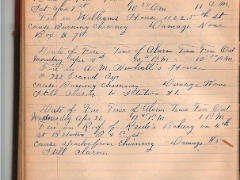 Sat Apr 1st 10:20 A.M. 11 A.M.
Fire in Williams House 1022 5th St
Cause Burning Chimney Damage None
Box 
Date of Fire Time of Alarm Time Fire Out
Monday Apr 10th P.M. P.M.
Fire in A.M. House
# 733 Grand Ave
Cause Burning Chimney Damage None
Still Alarm to Station #1.
Date of Fire Time of Alarm Time Fire Out
Wednesday Apr 26 P.M. 1 P.M.
Fire in Roof of Bakery on 4th
St
Cause Sparks from Chimney Damage $5
Still Alarm.